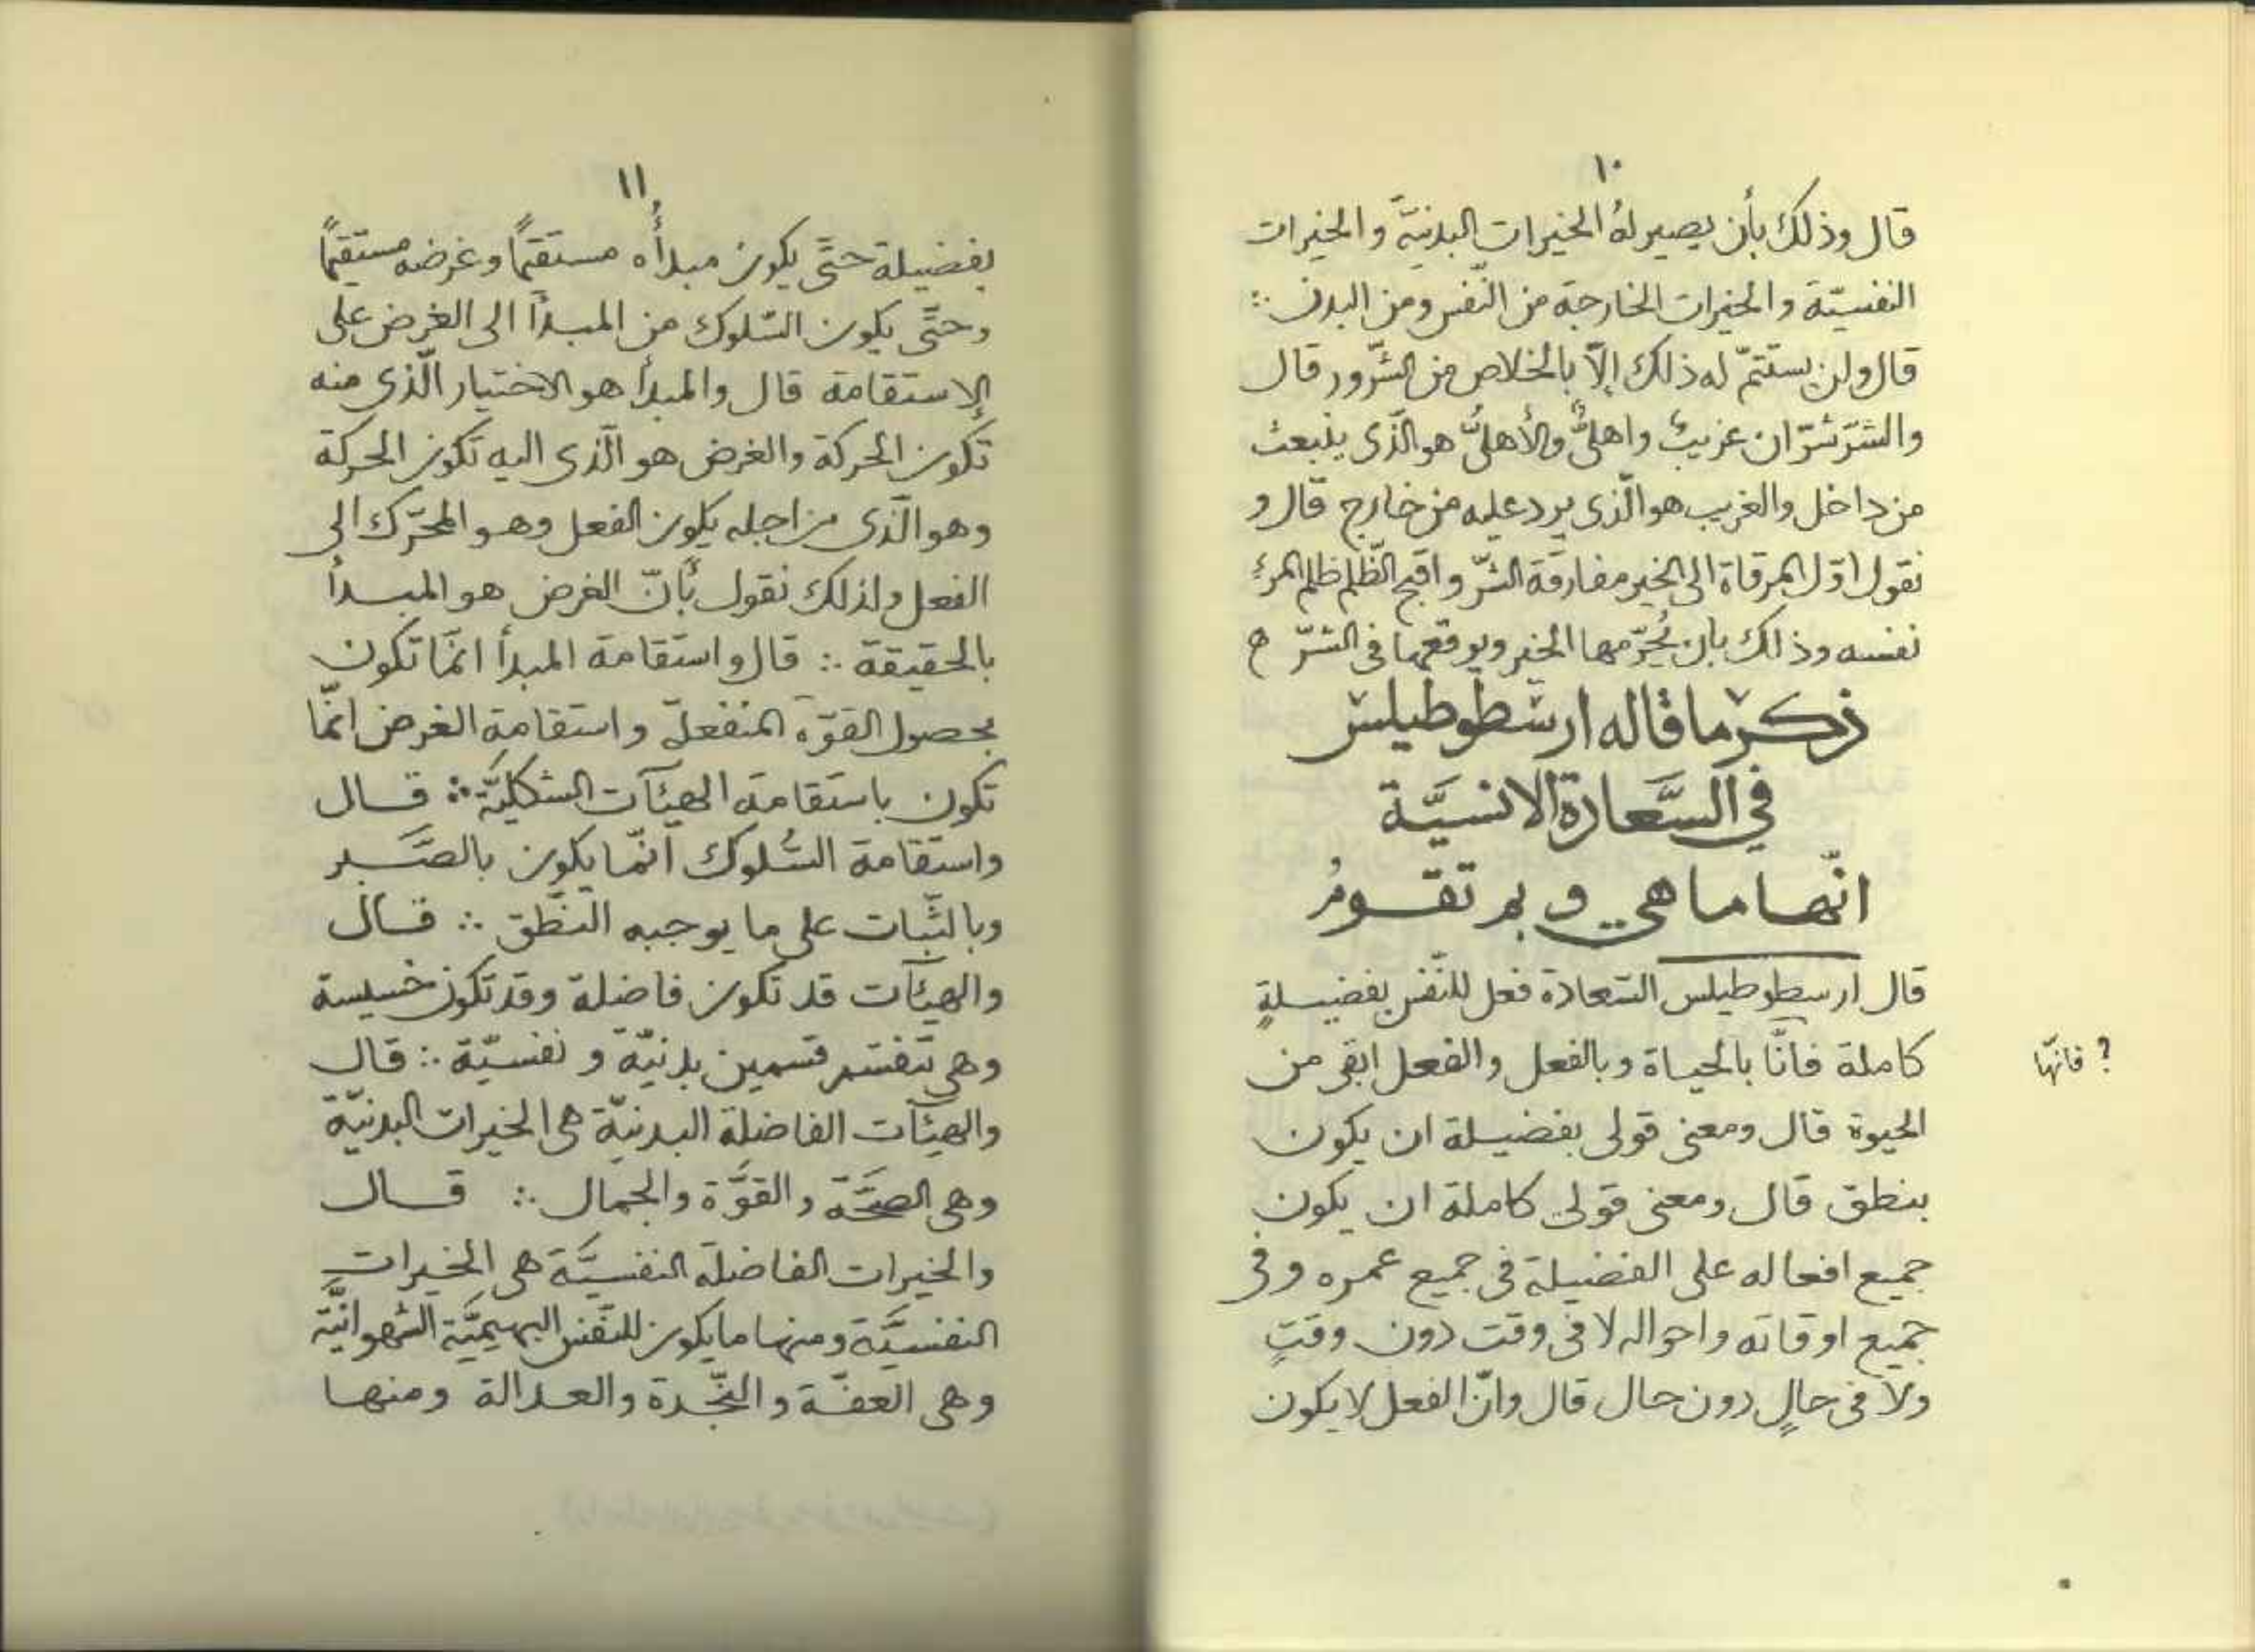 ١٠
قال وذلك بأن يصير لهُ الخيرات البدنيّة والخيرات
النفسيّة والخيرات الخارجة من النّفس ومن البدن ∴
قال ولن يستتمّ له ذلك إلاّ بالخلاص من الشّرور قال
والشرّ شرّان غريبٌ واهلىٌّ والأهلىُّ هو الّذى ينبعث
من داخل والغريب هو الّذى يرد عليه من خارج قال و
نقول اوّل المرقاة الى الخير مفارقة الشرّ واقبح الظّلم ظلم المرءِ
نفسه وذلك بان يُحرّمها الخير ويوقعها فى الشرّ ح
ذكر ما قاله ارسطوطيلس
في السَّعادة الانسيَّة
انّها ما هي وبم تقومُ
قال ارسطوطيلس السّعادة فعل للنّفس بفضيلةٍ
كاملة فانّا بالحياة وبالفعل والفعل ابقى من
? فانّها
الحيوة قال ومعنى قولى بفضيلة ان يكون
بنطق قال ومعنى قولى كاملة ان يكون
جميع افعاله على الفضيلة فى جميع عمره وفى
جميع اوقاته واحواله لا فى وقت دون وقتٍ
ولا فى حالٍ دون حال قال وانّ الفعل لا يكون
١١
بفضيلة حتّى يكون مبدأُه مستقيمًا وغرضه مستقيمًا
وحتّى يكون السّلوك من المبدأ الى الغرض على
الاستقامة قال والمبدأ هو الاختيار الّذى منه
تكون الحركة والغرض هو الّذى اليه تكون الحركة
وهو الّذى من اجله يكون الفعل وهو المحرّك الى
الفعل ولذلك نقول بأنّ الغرض هو المبدأ
بالحقيقة ∴ قال واستقامة المبدأ انمّا تكون
بحصول القوّة المنفعلة واستقامة الغرض انمّا
تكون باستقامة الهيئآت الشكليّة ∴ قال
واستقامة السُّلوك انّما يكون بالصَّبر
وبالثّبات على ما يوجبه النّطق ∴ قال
والهيئآت قد تكون فاضلة وقد تكون خسيسة
وهى تنقسم قسمين بدنيّة و نفسيّة ∴ قال
والهيئآت الفاضلة البدنيّة هى الخيرات البدنيّة
وهى الصّحَّة والقوَّة والجمال ∴ قال
والخيرات الفاضلة النفسيَّة هى الخيرات
النفسيَّة ومنها ما يكون للنّفس البهيميَّة الشهوانيَّة
وهى العفّة والنّجدة والعدالة ومنها